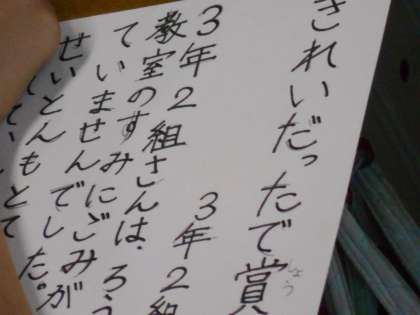 きれいだったで賞
しょう
3年2組
3年2組さんは、ろう
教室のすみにごみが
ていませんでした。
せいとんもとて